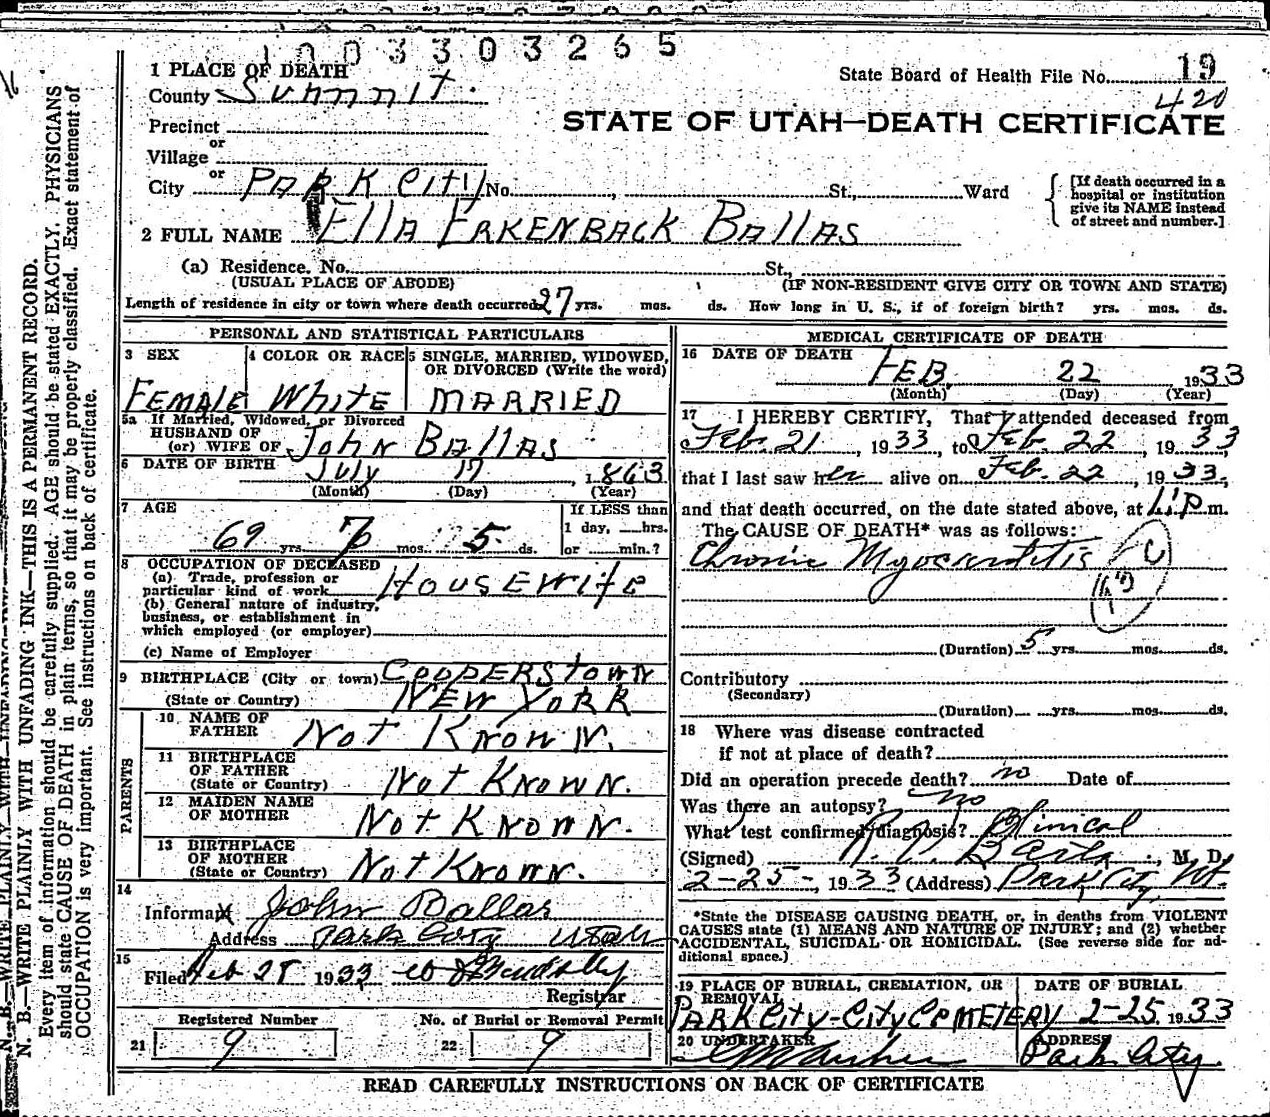 1003303265
1 PLACE OF DEATH
County Summit.
State Board of Health File No. 19
420
STATE OF UTAH—DEATH CERTIFICATE
Precinct
or
Village
or
City PARK CITY No. , St., Ward
[If death occurred in a
hospital or institution
give its NAME instead
of street and number.]
2 FULL NAME Ella ERKENBACK BALLAS
(a) Residence. No. St.,
(USUAL PLACE OF ABODE) (IF NON-RESIDENT GIVE CITY OR TOWN AND STATE)
Length of residence in city or town where death occurred 27 yrs. mos. ds. How long in U. S., if of foreign birth? yrs. mos. ds.
PERSONAL AND STATISTICAL PARTICULARS
3 SEX
Female
4 COLOR OR RACE
White
5 SINGLE, MARRIED, WIDOWED,
OR DIVORCED (Write the word)
MARRIED
5a If Married, Widowed, or Divorced
HUSBAND OF
(or) WIFE OF John BALLAS
6 DATE OF BIRTH July 17, 1863
(Month) (Day) (Year)
7 AGE
69 yrs. 7 mos. 5 ds.
If LESS than
1 day, hrs.
or min.?
8 OCCUPATION OF DECEASED
(a) Trade, profession or
particular kind of work HOUSEWIFE
(b) General nature of industry,
business, or establishment in
which employed (or employer)
(c) Name of Employer
9 BIRTHPLACE (City or town) COOPERSTOWN
(State or Country) NEW YORK
PARENTS
10 NAME OF
FATHER Not Known.
11 BIRTHPLACE
OF FATHER
(State or Country) Not Known.
12 MAIDEN NAME
OF MOTHER Not Known.
13 BIRTHPLACE
OF MOTHER
(State or Country) Not Known.
14
Informant John Ballas
Address Park City Utah
15
Filed Feb 28 1933
Registrar
Registered Number
21 9
No. of Burial or Removal Permit
22 9
MEDICAL CERTIFICATE OF DEATH
16 DATE OF DEATH
FEB. 22 1933
(Month) (Day) (Year)
17 I HEREBY CERTIFY, That I attended deceased from
Feb. 21, 1933, to Feb. 22, 1933
that I last saw her alive on Feb. 22, 1933,
and that death occurred, on the date stated above, at p.m.
The CAUSE OF DEATH* was as follows:
Chronic Myocarditis
(Duration) 5 yrs. mos. ds.
Contributory
(Secondary)
(Duration) yrs. mos. ds.
18 Where was disease contracted
if not at place of death?
Did an operation precede death? no Date of
Was there an autopsy? no
What test confirmed diagnosis? Clinical
(Signed) , M. D.
2-25-, 1933 (Address) Park City, Ut.
*State the DISEASE CAUSING DEATH, or, in deaths from VIOLENT
CAUSES state (1) MEANS AND NATURE OF INJURY; and (2) whether
ACCIDENTAL, SUICIDAL OR HOMICIDAL. (See reverse side for ad-
ditional space.)
19 PLACE OF BURIAL, CREMATION, OR
REMOVAL
PARK CITY-CITY CEMETERY
DATE OF BURIAL
2-25, 1933
20 UNDERTAKER
ADDRESS
Park City.
READ CAREFULLY INSTRUCTIONS ON BACK OF CERTIFICATE
N. B.—WRITE PLAINLY WITH UNFADING INK—THIS IS A PERMANENT RECORD.
Every item of information should be carefully supplied. AGE should be stated EXACTLY. PHYSICIANS
should state CAUSE OF DEATH in plain terms, so that it may be properly classified. Exact statement of
OCCUPATION is very important. See instructions on back of certificate.